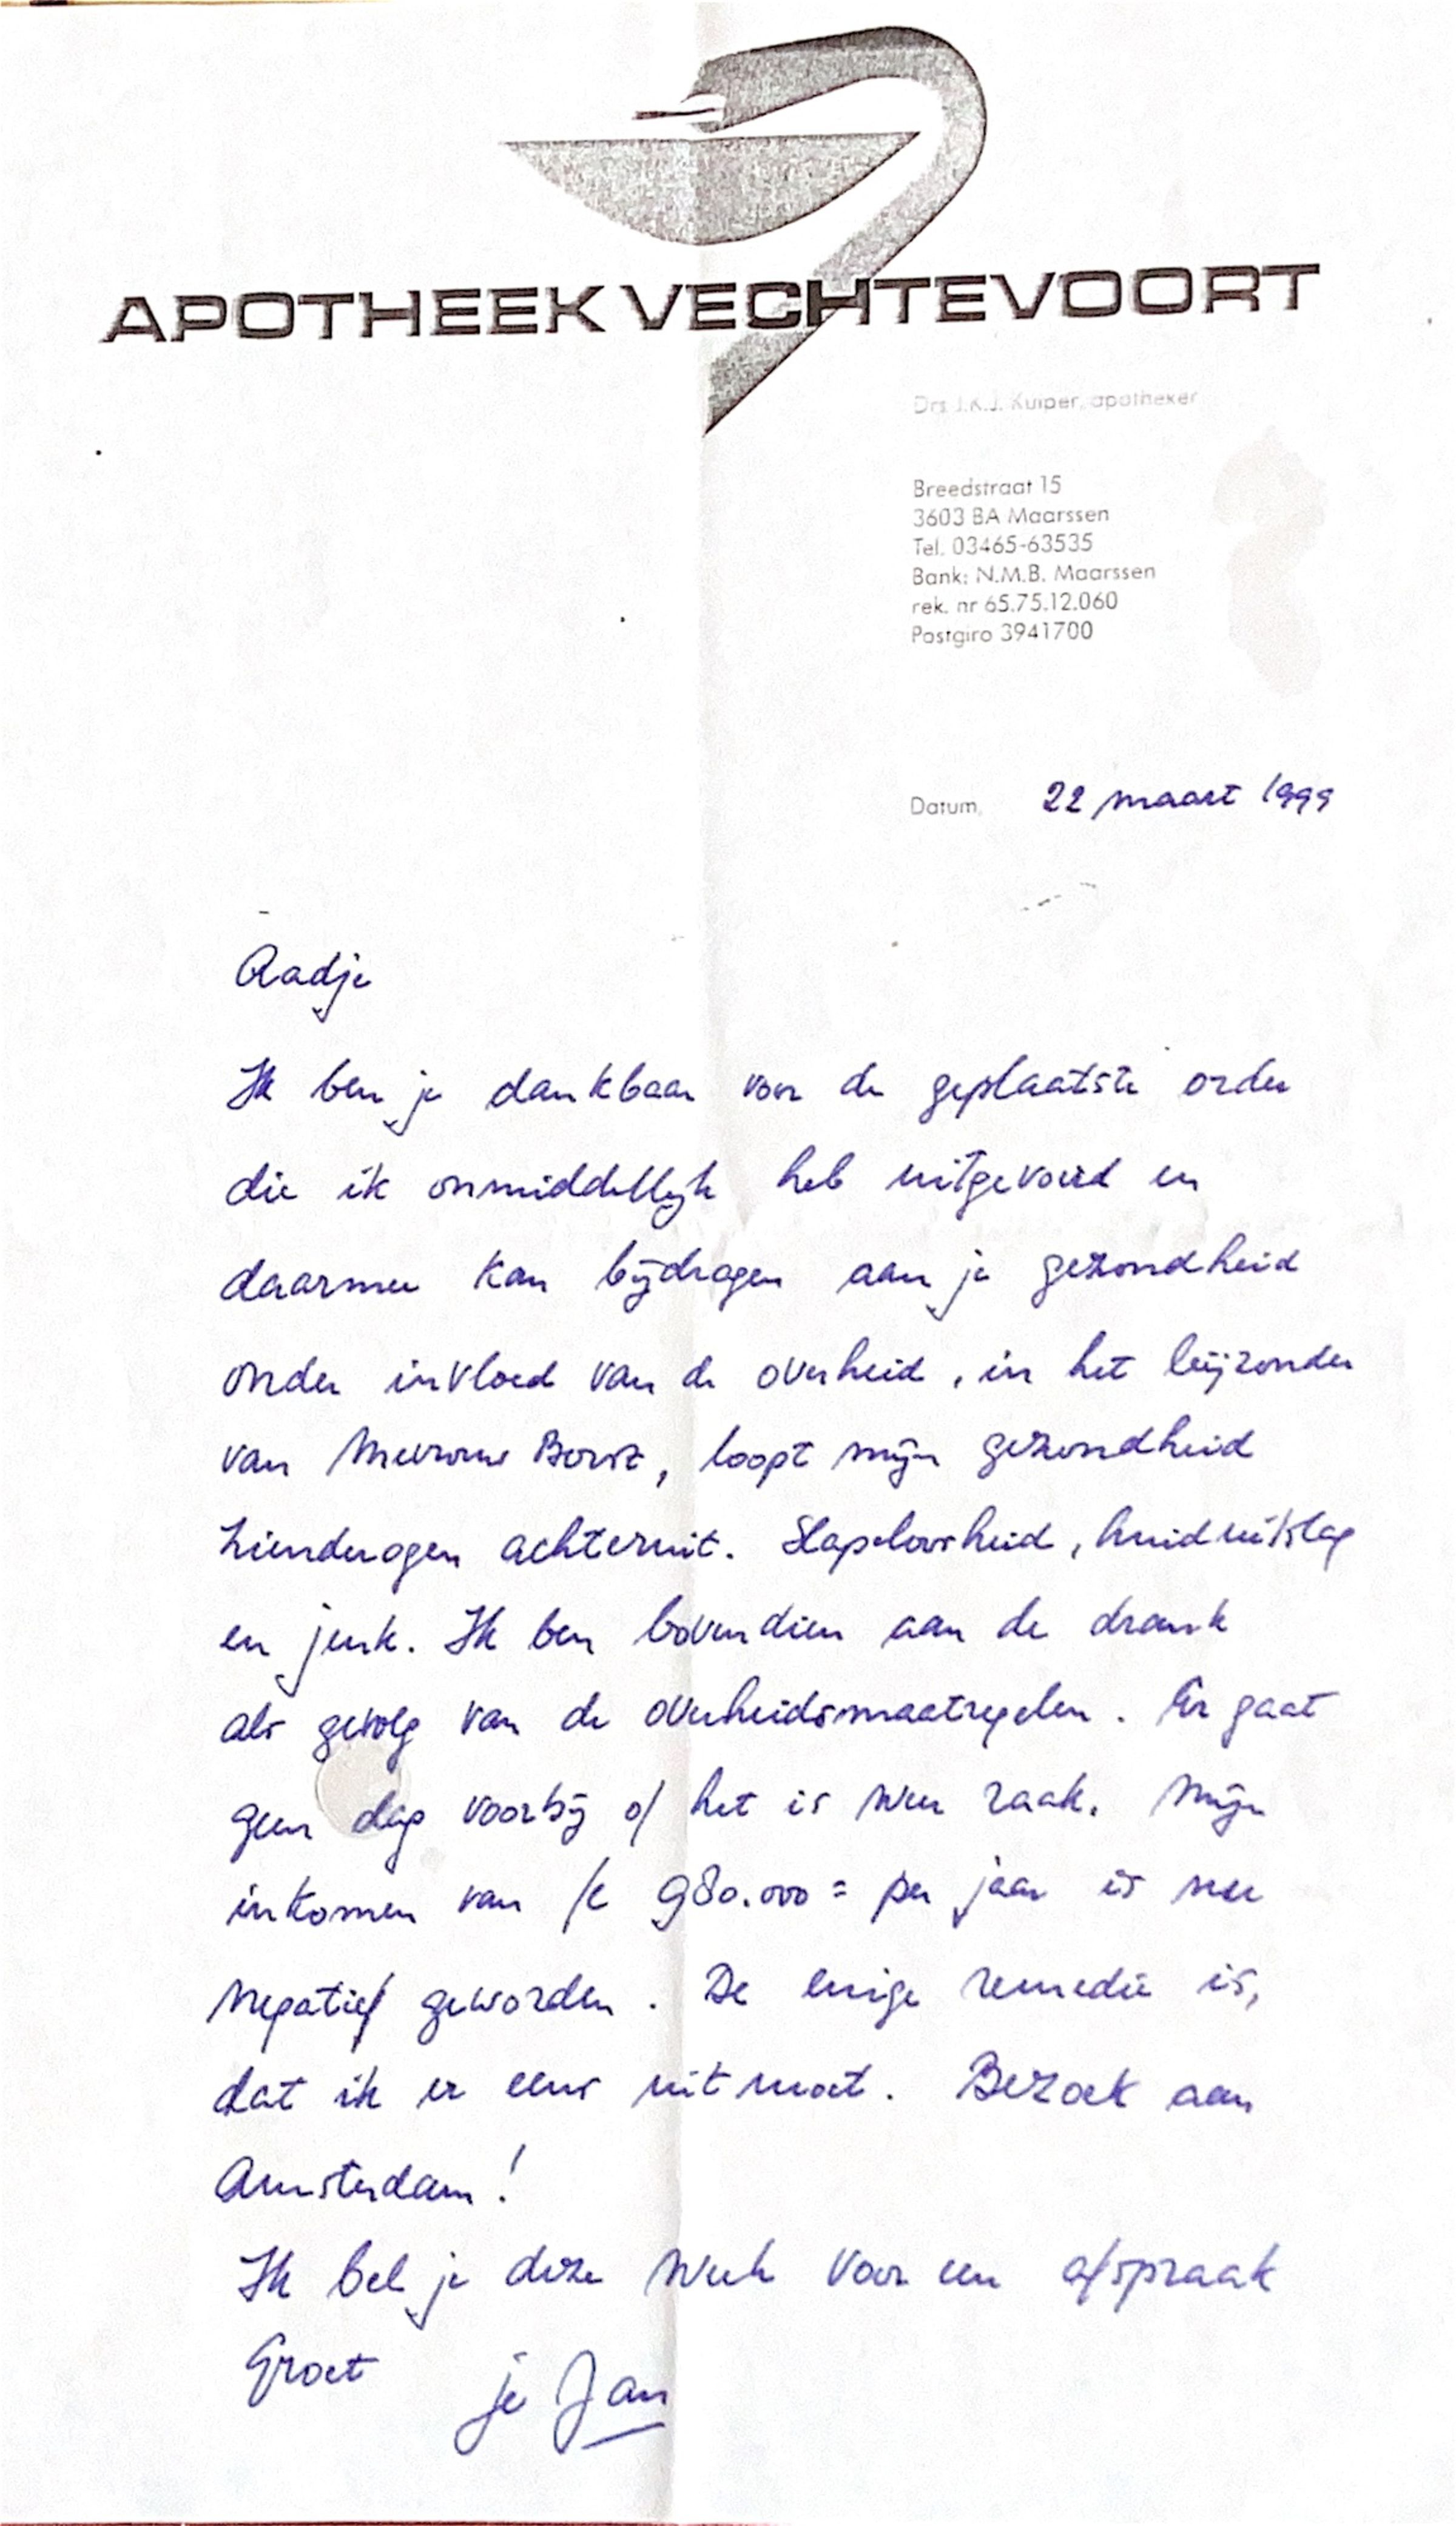 APOTHEEK VECHTEVOORT
Drs J.K.J. Kuiper, apotheker
Breedstraat 15
3603 BA Maarssen
Tel. 03465-63535
Bank: N.M.B. Maarssen
rek. nr 65.75.12.060
Postgiro 3941700
Datum, 22 maart 1999
Aadje
Ik ben je dankbaar voor de geplaatste order
die ik onmiddellijk heb uitgevoerd en
daarmee kan bijdragen aan je gezondheid
onder invloed van de overheid, in het bijzonder
van Mevrouw Borst, loopt mijn gezondheid
zienderogen achteruit. Slapeloosheid, huiduitslag
en jeuk. Ik ben bovendien aan de drank
als gevolg van de overheidsmaatregelen. Er gaat
geen dag voorbij of het is weer raak. Mijn
inkomen van 980.000= per jaar is nu
negatief geworden. De enige remedie is,
dat ik er eens uit moet. Bezoek aan
Amsterdam!
Ik bel je deze week voor een afspraak
Groet je Jan